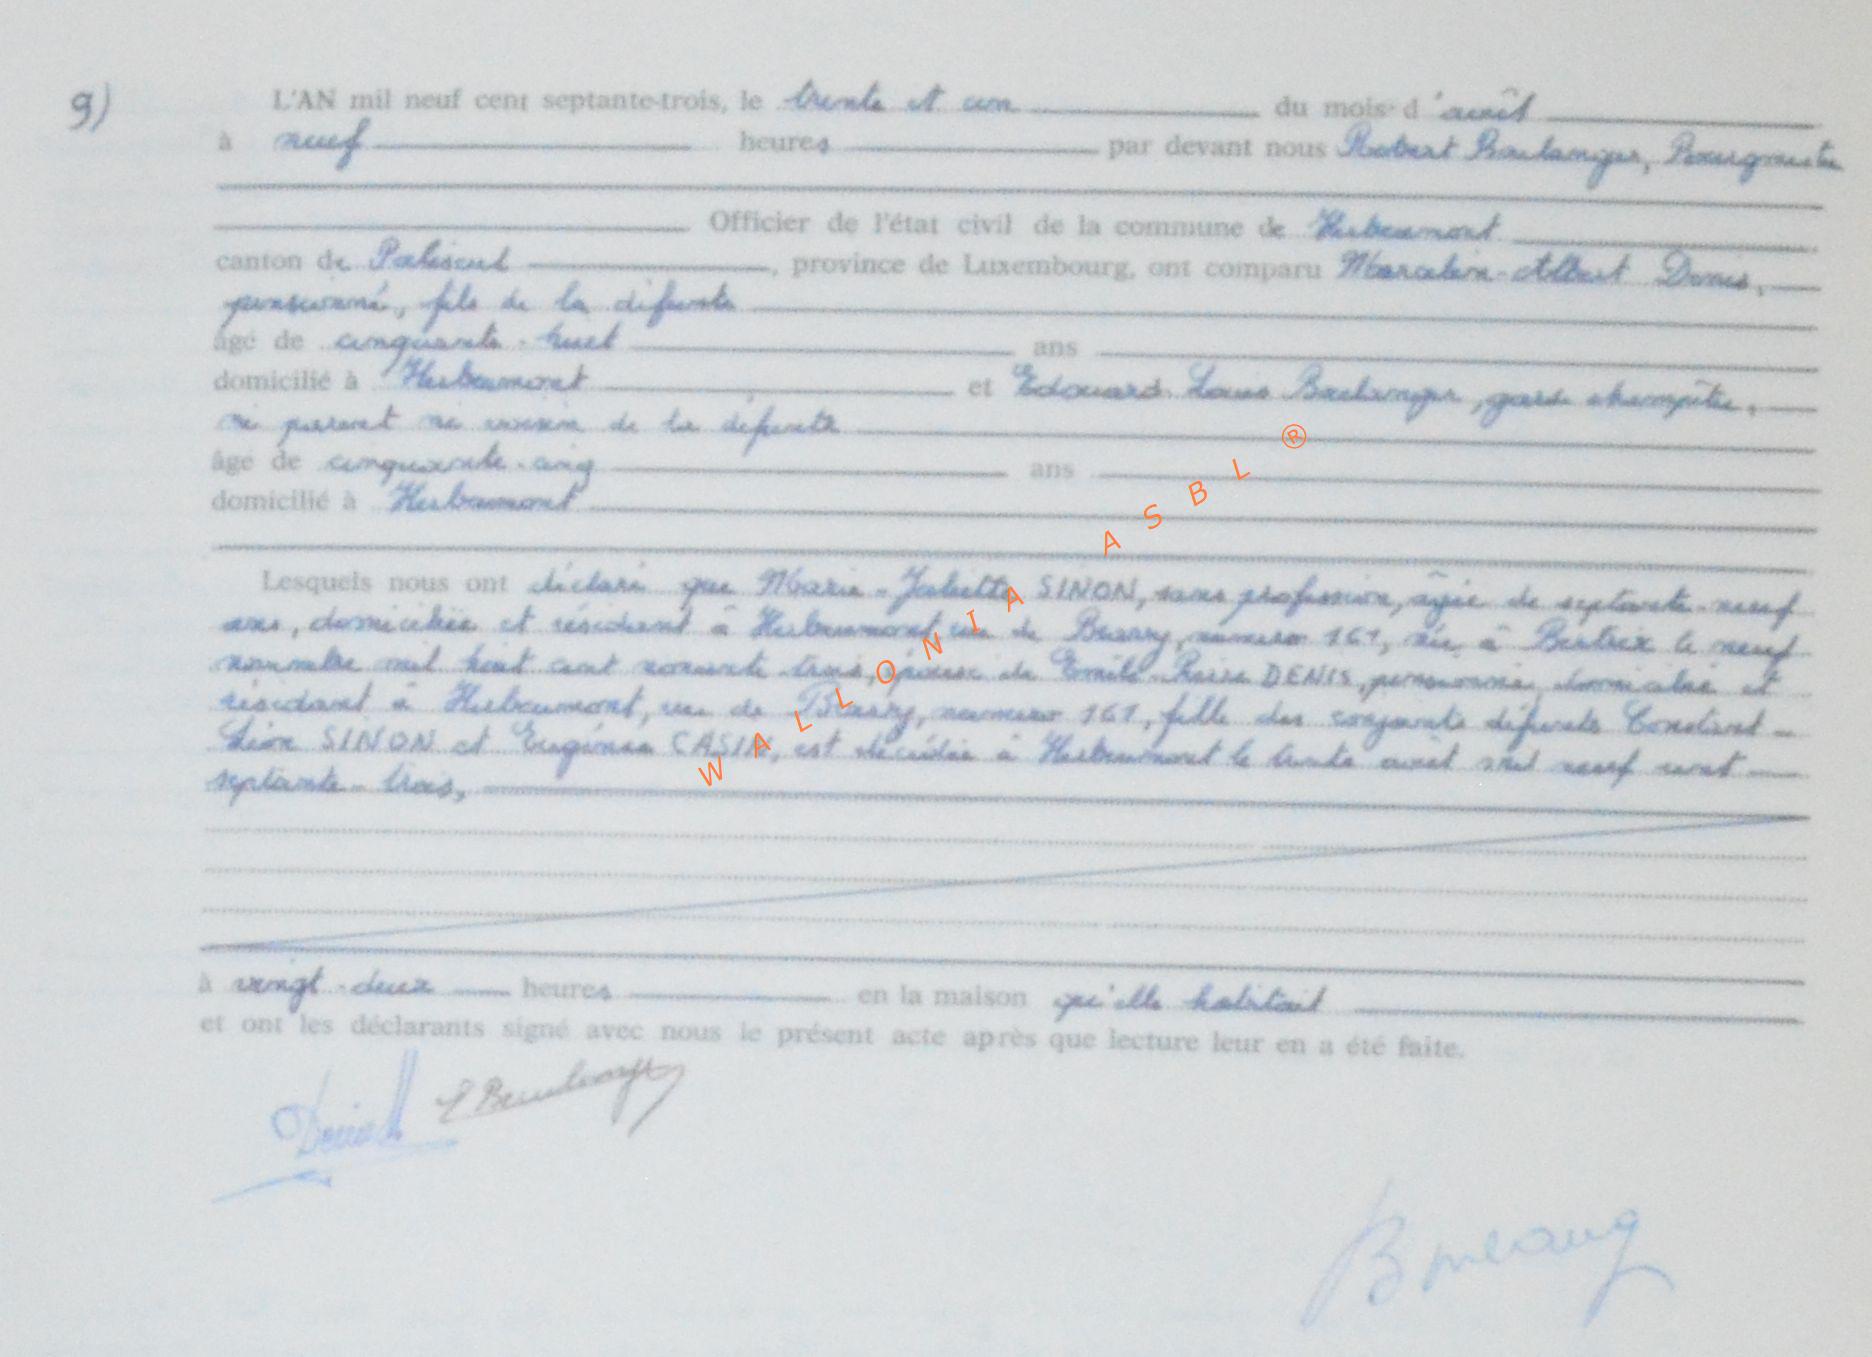 9) L'AN mil neuf cent septante-trois, le trente et un du mois d'août
à neuf heures par devant nous Robert Boulanger, Bourgmestre
Officier de l'état civil de la commune de Herbeumont
canton de Paliseul, province de Luxembourg, ont comparu Marcelin-Albert Denis,
pensionné, fils de la défunte
âgé de cinquante-huit ans
domicilié à Herbeumont et Edouard Louis Boulanger, garde champêtre,
ni parent ni voisin de la défunte
âgé de cinquante-cinq ans
domicilié à Herbeumont
Lesquels nous ont déclaré que Marie-Juliette SINON, sans profession, âgée de septante-neuf
ans, domiciliée et résidant à Herbeumont rue de numéro 161, née à Bertrix le neuf
novembre mil huit cent nonante trois, épouse de Emile DENIS, pensionné, domicilié et
résidant à Herbeumont, rue de numéro 161, fille des conjoints défunts Constant-
Léon SINON et Eugénie CASIN, est décédée à Herbeumont le trente août mil neuf cent
septante-trois,
à vingt-deux heures en la maison qu'elle habitait
et ont les déclarants signé avec nous le présent acte après que lecture leur en a été faite.
WALLONIA ASBL ®